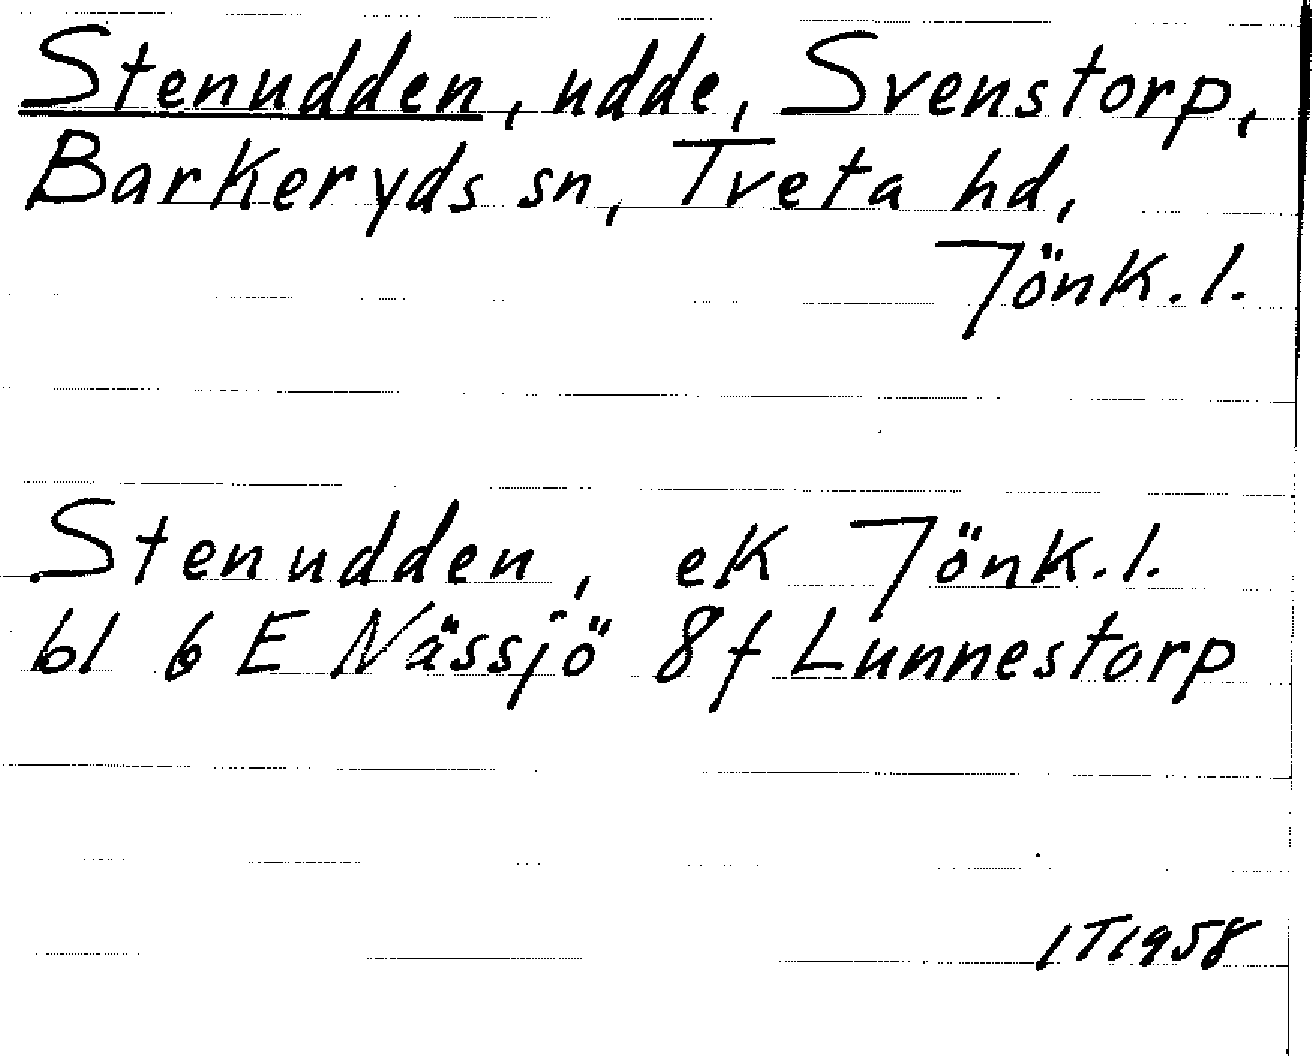 Stenudden, udde, Svenstorp,
Barkeryds sn, Tveta hd,
Jönk.l.
Stenudden, ek Jönk.l.
bl 6 E Nässjö 8f Lunnestorp
IT1958